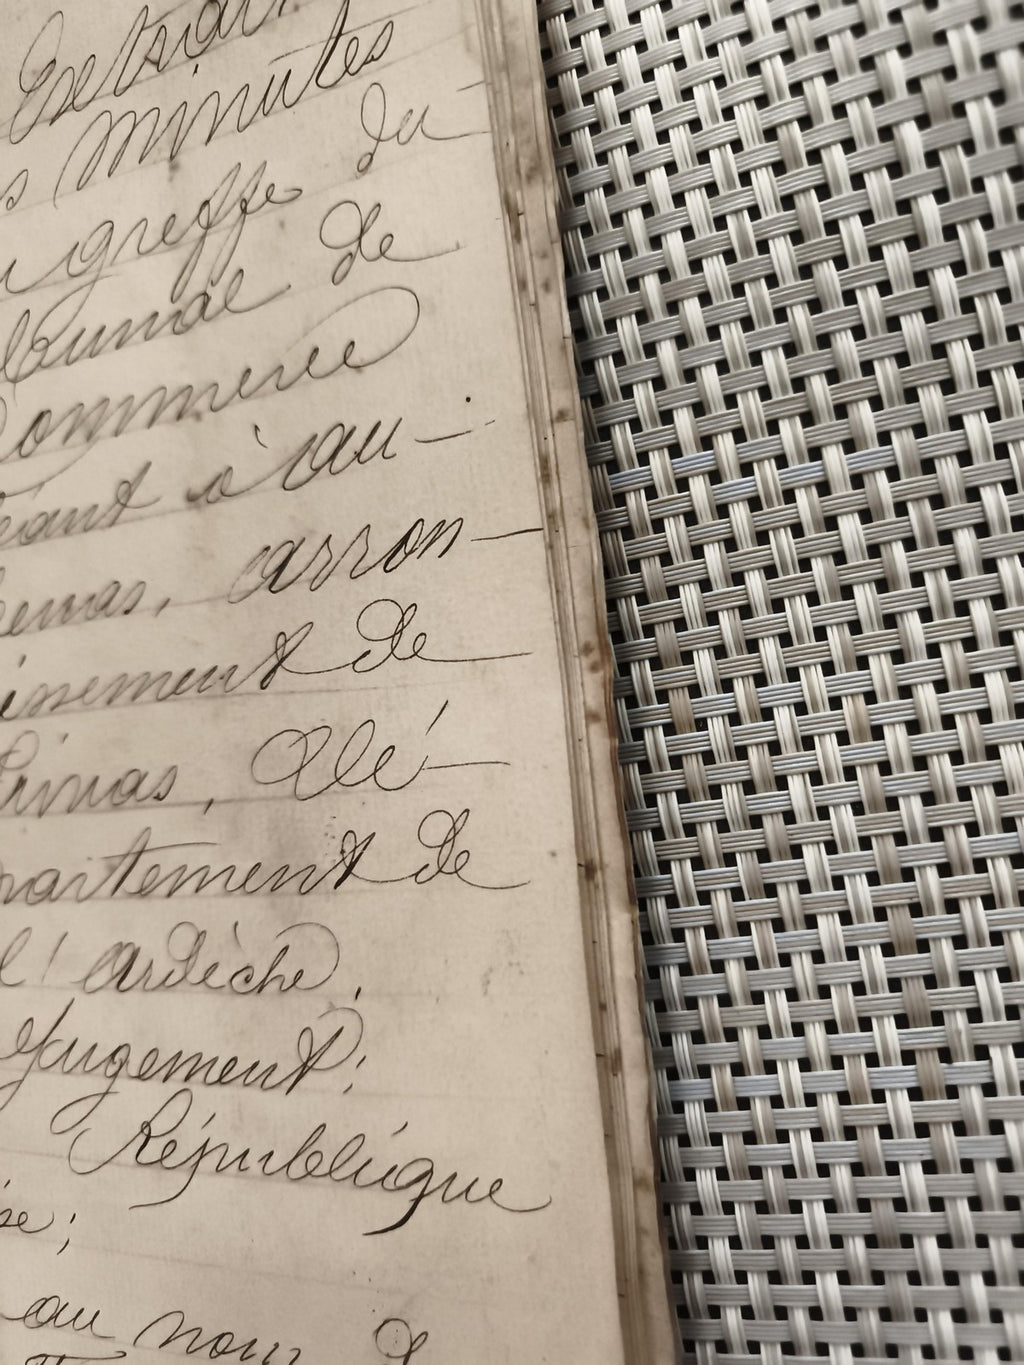 Extrait
s minutes
greffe du
de
Commerce
éant à Au-
benas, arron-
issement de
Privas, dé-
partement de
l'Ardèche.
Jugement:
République
se;
au nom d